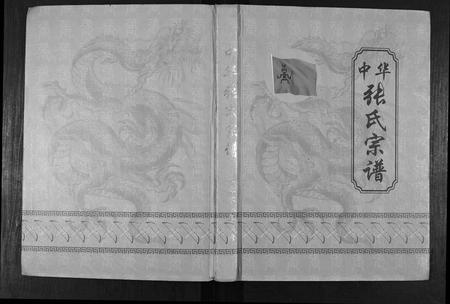 中华
张氏宗谱
中华张氏宗谱